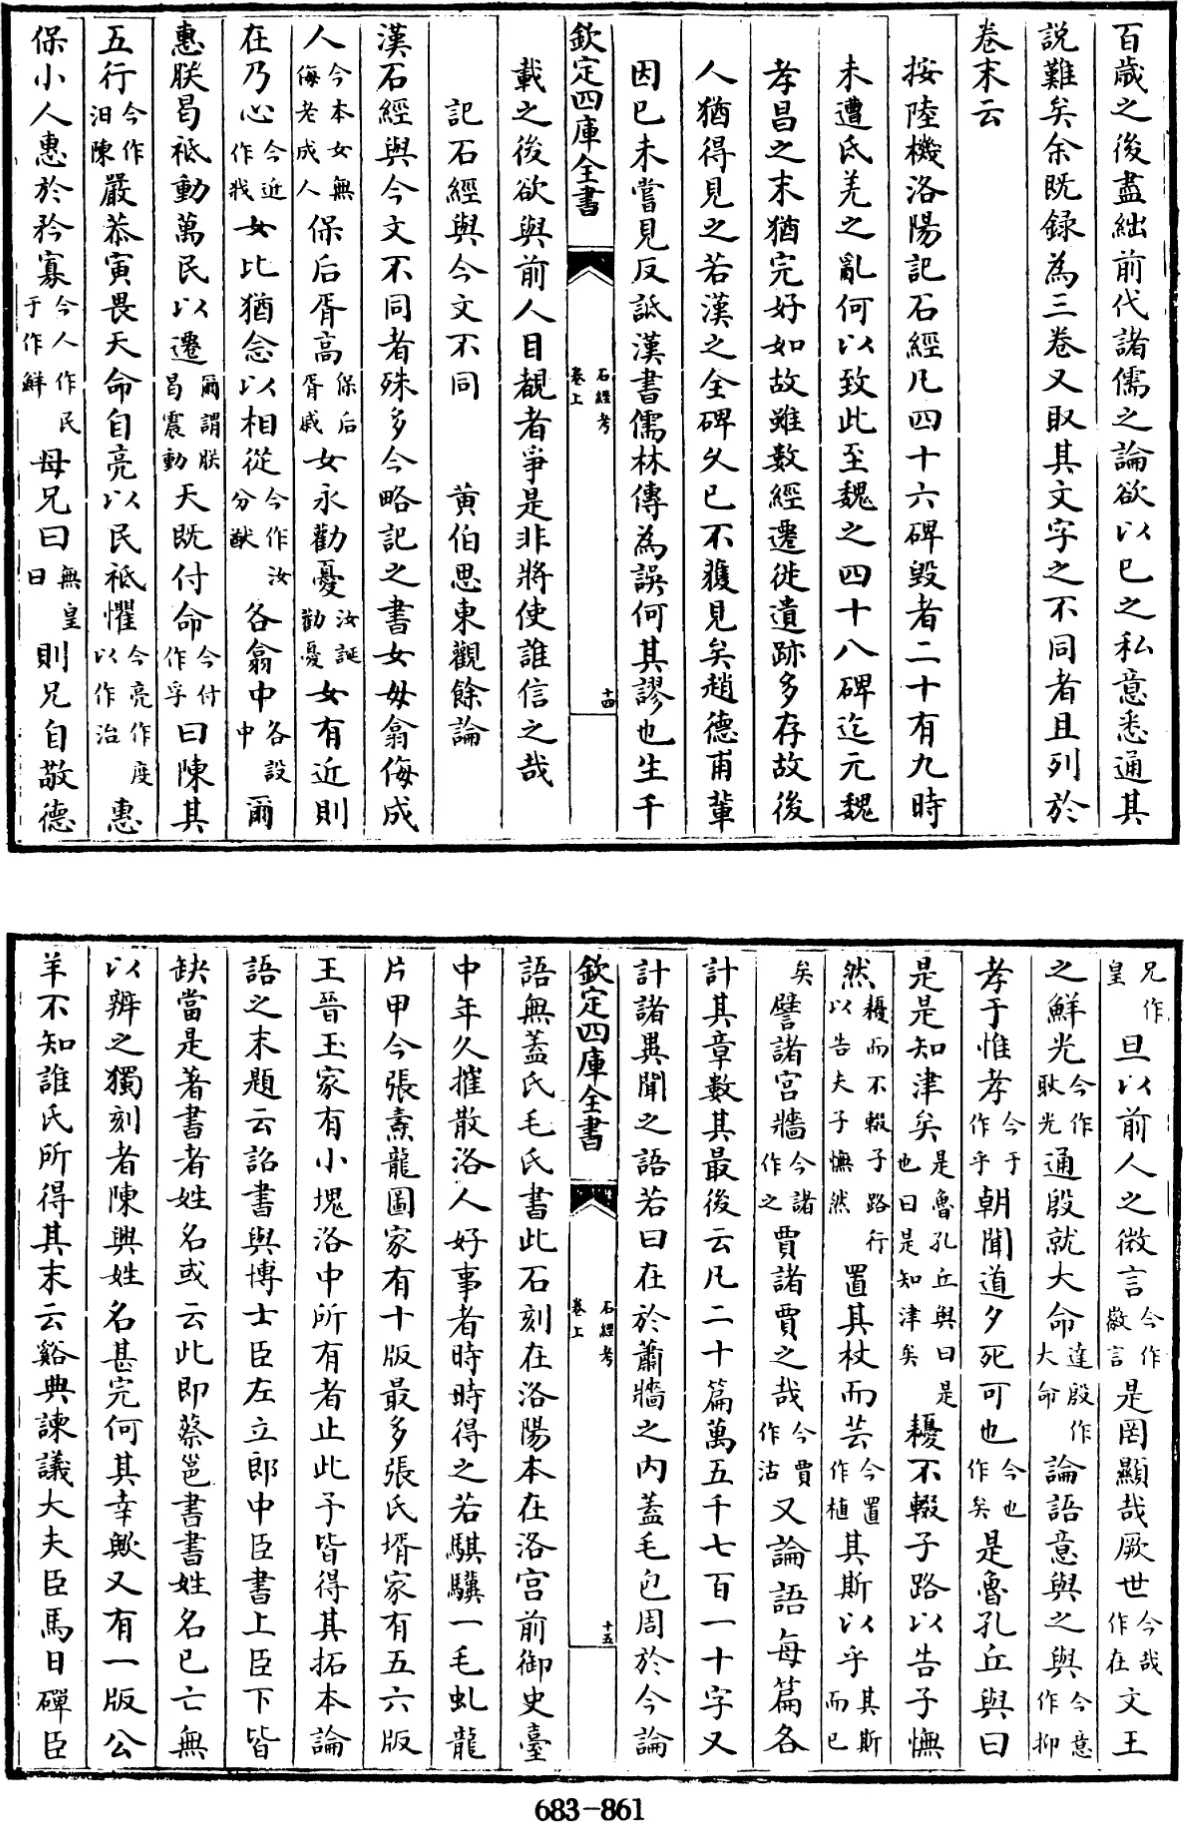 百歲之後盡絀前代諸儒之論欲以已之私意悉通其
説難矣余既録為三卷又取其文字之不同者且列於
卷末云
按陸機洛陽記石經凡四十六碑毀者二十有九時
未遭氐羌之亂何以致此至魏之四十八碑迄元魏
孝昌之末猶完好如故雖數經遷徙遺跡多存故後
人猶得見之若漢之全碑久已不獲見矣趙德甫輩
因已未嘗見反詆漢書儒林傳為誤何其謬也生千
欽定四庫全書 石經考卷上 十四
載之後欲與前人目覩者爭是非將使誰信之哉
記石經與今文不同 黃伯思東觀餘論
漢石經與今文不同者殊多今略記之書女毋翕侮成
人今本女無侮老成人保后胥高保后胥慼女永勸憂汝誕勸憂女有近則
在乃心今近作戕女比猶念以相從今作汝分猷各翕中各設中爾
惠朕曷祗動萬民以遷爾謂朕曷震動天既付命今付作孚曰陳其
五行今作汨陳嚴恭寅畏天命自亮以民祗懼今亮作度以作治惠
保小人惠於矜寡今人作民于作鮮毋兄曰無皇曰則兄自敬德
兄作皇旦以前人之微言今作徽言是罔顯哉厥世今哉作在文王
之鮮光今作耿光通殷就大命達殷作大命論語意與之與今意作抑
孝于惟孝今于作乎朝聞道夕死可也今也作矣是魯孔丘與曰
是是知津矣是魯孔丘與曰是也曰是知津矣耰不輟子路以告子憮
然耰而不輟子路行以告夫子憮然置其杖而芸今置作植其斯以乎其斯而已
矣譬諸宮牆今諸作之賈諸賈之哉今賈作沽又論語每篇各
計其章數其最後云凡二十篇萬五千七百一十字又
計諸異聞之語若曰在於蕭牆之內蓋毛包周於今論
欽定四庫全書 石經考卷上 十五
語無蓋氏毛氏書此石刻在洛陽本在洛宮前御史臺
中年久摧散洛人好事者時時得之若騏驥一毛虬龍
片甲今張燾龍圖家有十版最多張氏壻家有五六版
王晉玉家有小塊洛中所有者止此予皆得其拓本論
語之末題云詔書與博士臣左立郎中臣書上臣下皆
缺當是著書者姓名或云此即蔡邕書書姓名已亡無
以辨之獨刻者陳興姓名甚完何其幸歟又有一版公
羊不知誰氏所得其末云谿典諫議大夫臣馬日磾臣
683-861